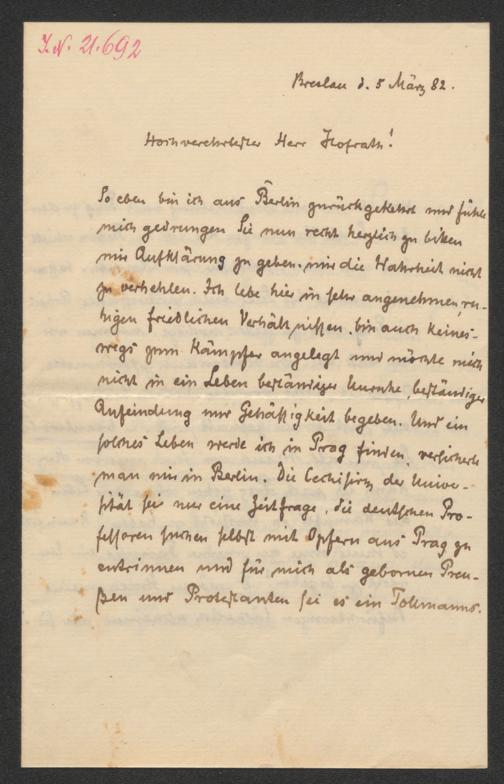 I.N. 21.692
Breslau d. 5 März 82.
Hochverehrtester Herr Hofrath!
So eben bin ich aus Berlin zurückgekehrt und fühle
mich gedrungen Sie nun recht herzlich zu bitten
mir Aufklärung zu geben, mir die Wahrheit nicht
zu verhehlen. Ich lebe hier in sehr angenehmen, ru-
higen friedlichen Verhältnißen, bin auch keines-
wegs zum Kämpfer angelegt und möchte mich
nicht in ein Leben beständiger Unruhe, beständiger
Anfeindung und Gehäßigkeit begeben. Und ein
solches Leben werde ich in Prag finden, versicherte
man mir in Berlin. Die Cechisirg der Univer-
sität sei nur eine Zeitfrage, die deutschen Pro-
fessoren suchen selbst mit Opfern aus Prag zu
entrinnen und für mich als gebornen Preu-
ßen und Protestanten sei es ein Tollmanns-